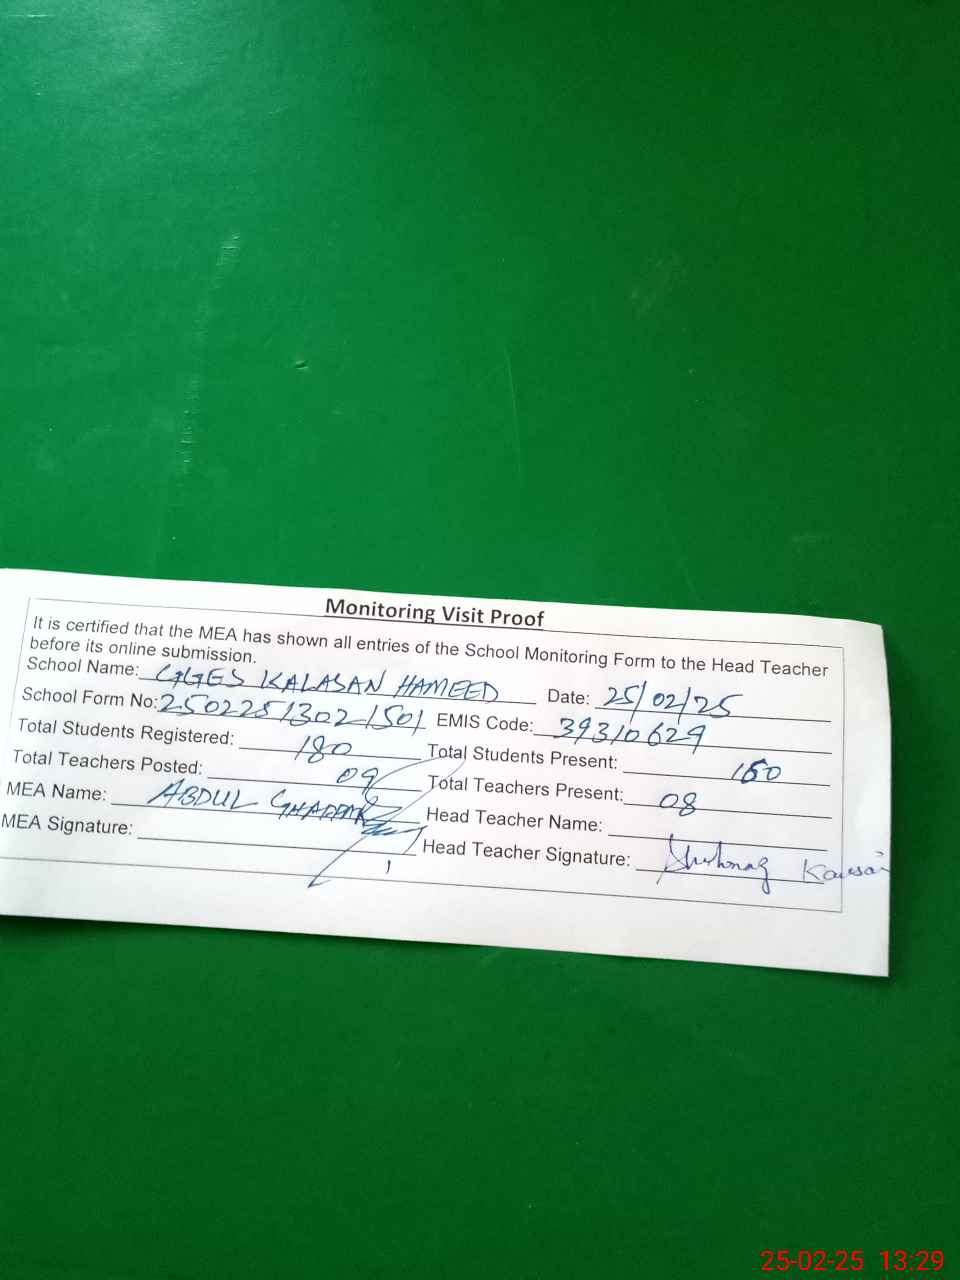 Monitoring Visit Proof
It is certified that the MEA has shown all entries of the School Monitoring Form to the Head Teacher
before its online submission.
School Name: GGES KALASAN HAMEED Date: 25/02/25
School Form No: 25022513021501 EMIS Code: 39310629
Total Students Registered: 180 Total Students Present: 160
Total Teachers Posted: 09 Total Teachers Present: 08
MEA Name: ABDUL GHAFFAR Head Teacher Name:
MEA Signature: Head Teacher Signature: Shahnaz Kausar
25-02-25 13:29